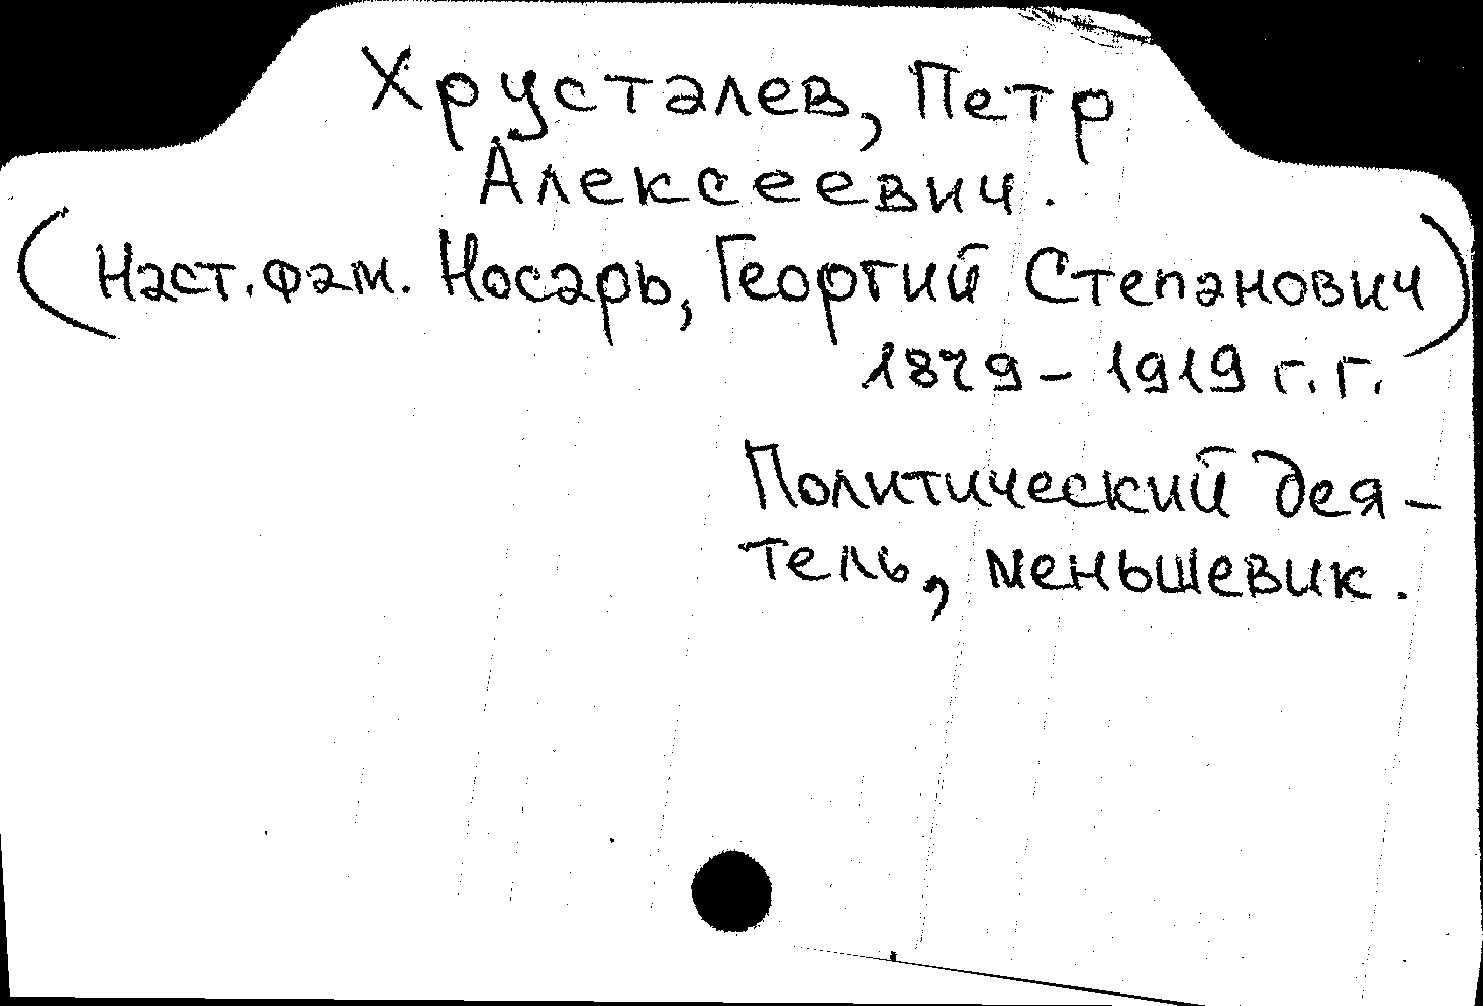 Хрусталев, Петр
Алексеевич.
(Наст. фам. Носарь, Георгий Степанович)
1879 – 1919 г. г.
Политический дея-
тель, меньшевик.